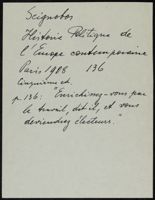 Seignobos
Histoire Politique de
l'Europe contemporaine
Paris 1908 136
Cinquième éd.
p. 136: "Enrichissez-vous par
le travail, dit il, et vous
deviendrez électeurs."